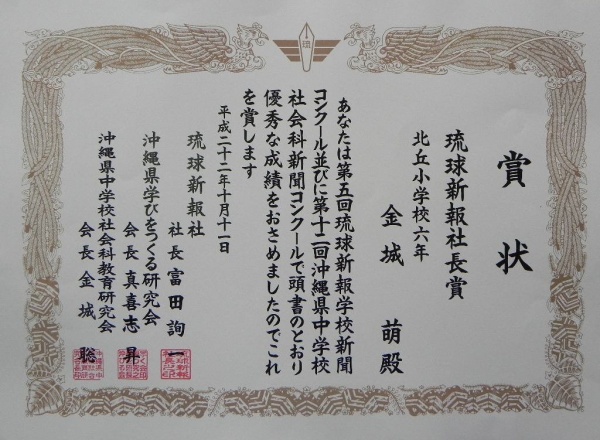 賞状
琉球新報社長賞
北丘小学校六年
金城 萌殿
あなたは第五回琉球新報学校新聞
コンクール並びに第十二回沖縄県中学校
社会科新聞コンクールで頭書のとおり
優秀な成績をおさめましたのでこれ
を賞します
平成二十二年十月十一日
琉球新報社
社長 富田詢一
沖縄県学びをつくる研究会
会長 真喜志昇
沖縄県中学校社会科教育研究会
会長 金城聡